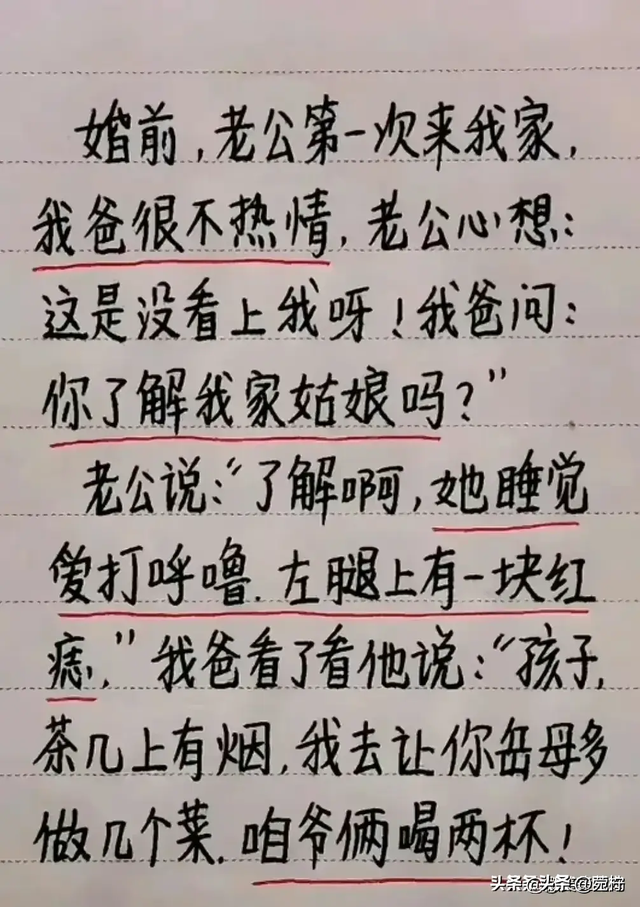 婚前，老公第一次来我家，
我爸很不热情，老公心想：
这是没看上我呀！我爸问：
你了解我家姑娘吗？”
老公说：“了解啊，她睡觉
爱打呼噜．左腿上有一块红
痣，”我爸看了看他说：“孩子，
茶几上有烟，我去让你岳母多
做几个菜．咱爷俩喝两杯！